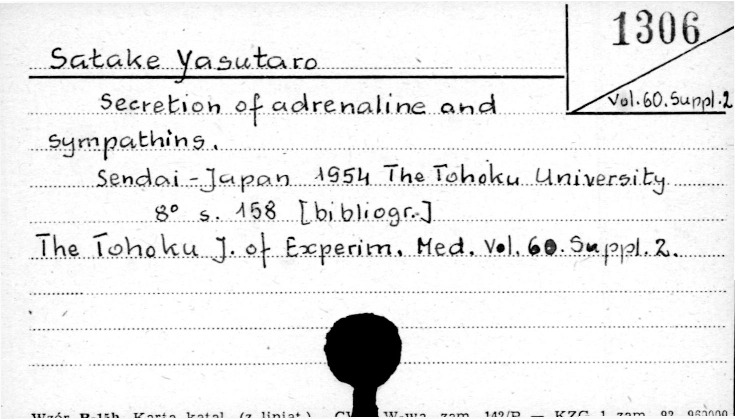 1306
Vol.60.Suppl.2
Satake Yasutaro
Secretion of adrenaline and
sympathins.
Sendai-Japan 1954 The Tohoku University
8° s. 158 [bibliogr.]
The Tohoku J. of Experim. Med. Vol. 60. Suppl. 2.
Wzór B-15b. Karta katal. (z liniat.) W-wa, zam. 142/P — KZG 1 zam. 92